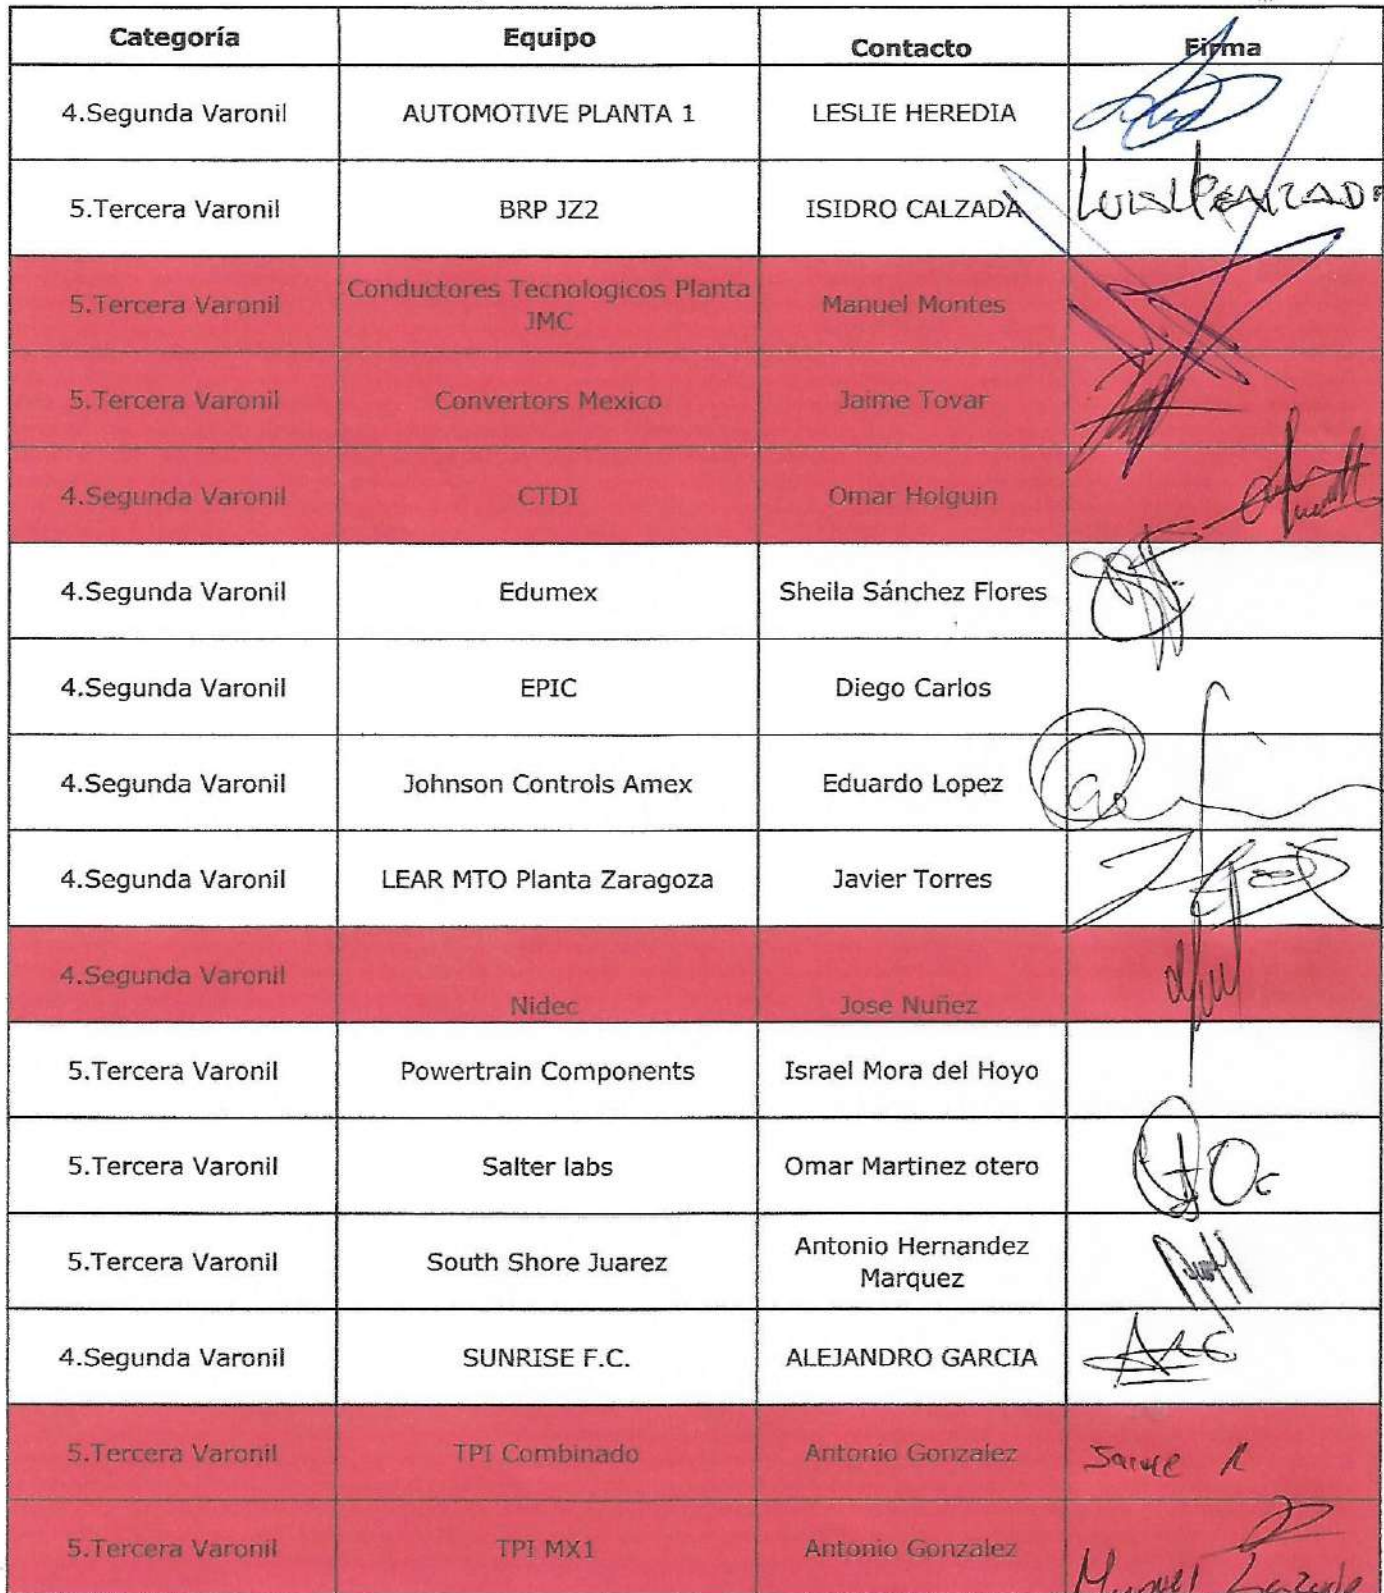 Categoría Equipo Contacto Firma
4.Segunda Varonil AUTOMOTIVE PLANTA 1 LESLIE HEREDIA
5.Tercera Varonil BRP JZ2 ISIDRO CALZADA
5.Tercera Varonil Conductores Tecnologicos Planta Manuel Montes
JMC
5.Tercera Varonil Convertors Mexico Jaime Tovar
4.Segunda Varonil CTDI Omar Holguin
4.Segunda Varonil Edumex Sheila Sánchez Flores
4.Segunda Varonil EPIC Diego Carlos
4.Segunda Varonil Johnson Controls Amex Eduardo Lopez
4.Segunda Varonil LEAR MTO Planta Zaragoza Javier Torres
4.Segunda Varonil Nidec Jose Nuñez
5.Tercera Varonil Powertrain Components Israel Mora del Hoyo
5.Tercera Varonil Salter labs Omar Martinez otero
5.Tercera Varonil South Shore Juarez Antonio Hernandez
Marquez
4.Segunda Varonil SUNRISE F.C. ALEJANDRO GARCIA
5.Tercera Varonil TPI Combinado Antonio Gonzalez Jaime R
5.Tercera Varonil TPI MX1 Antonio Gonzalez Manuel